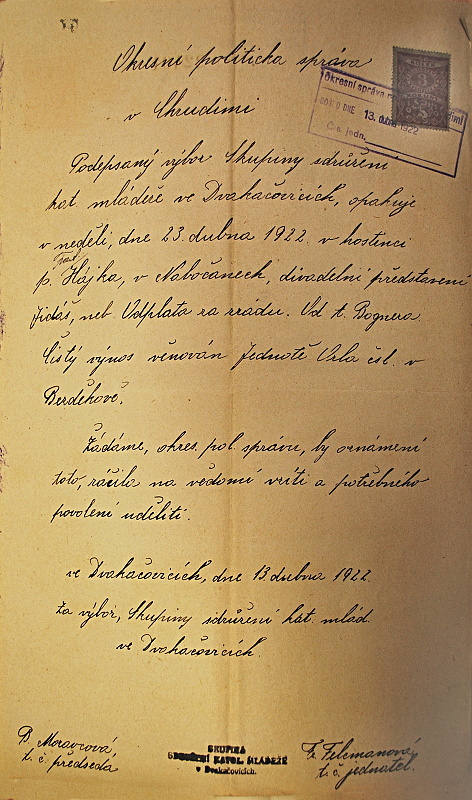 Okresní politická správa
v Chrudimi
Okresní správa
DOŠLO DNE 13. dubna 1922
Č. jedn.
Podepsaný výbor Skupiny sdružení
kat. mládeže ve Dvakačovicích, opakuje
v neděli, dne 23. dubna 1922. v hostinci
p. Hájka, v Nabočanech, divadelní představení
Jidáš, neb Odplata za zrádu. Od t. Bognera
Čistý výnos věnován Jednotě Orla čsl. v
Berděhově.
Žádáme, okres. pol. správu, by oznámení
toto, ráčila na vědomí vzíti a potřebného
povolení uděliti.
ve Dvakačovicích, dne 13. dubna 1922.
Za výbor, Skupiny sdružení kat. mlád.
ve Dvakačovicích.
B. Moravcová,
t. č. předseda
SKUPINA
SDRUŽENÍ KATOL. MLÁDEŽE
v Dvakačovicích.
Fr. Felcmanová
t. č. jednatel.